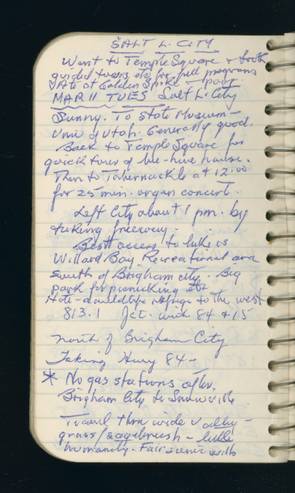 SALT L. CITY
Went to Temple Square & took
guided tours, etc. for full programs
MAR 11 TUES Salt L. City
Sunny. To State Museum -
Univ of Utah. Generally good.
Back to Temple Square for
quick tour of bee-hive house.
Then to Tabernackle at 12:00
for 25 min. organ concert.
Left City about 1 pm. by
taking freeway.
Best access to lake is
Willard Bay Recreational area
south of Brigham City. Big
park for picnicking etc
Note - refuge to the west
813.1 Jct. with 84 & 15
north of Brigham City
Taking Hwy 84 -
* No gas stations after
Brigham City to Snowville
Travel thru wide valley -
grass/sagebrush - little
humanity. Fair scenic with